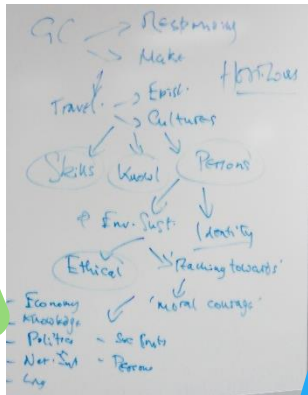 GC → Responding
→ Make
Horizons
Travel. → Epist.
→ Cultures
Skills Knowl Persons
Env. Sust. Identity
Ethical 'Reaching towards'
'moral courage'
- Economy
- Knowledge
- Politics
- Persons